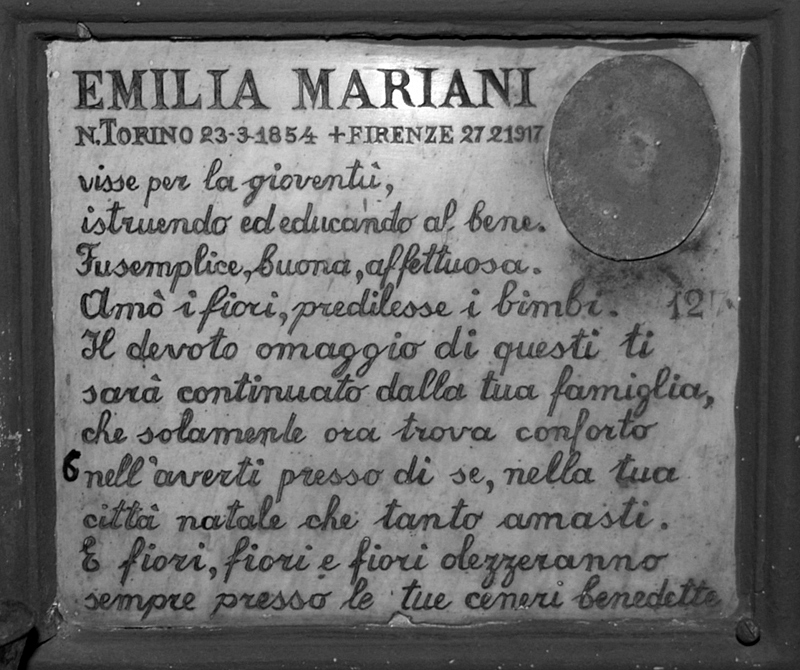 EMILIA MARIANI
N. TORINO 23-3-1854 +FIRENZE 27 2 1917
visse per la gioventù,
istruendo ed educando al bene.
Fu semplice, buona, affettuosa.
Amò i fiori, predilesse i bimbi. 127
Il devoto omaggio di questi ti
sarà continuato dalla tua famiglia,
che solamente ora trova conforto
6 nell'averti presso di se, nella tua
città natale che tanto amasti.
E fiori, fiori e fiori olezzeranno
sempre presso le tue ceneri benedette